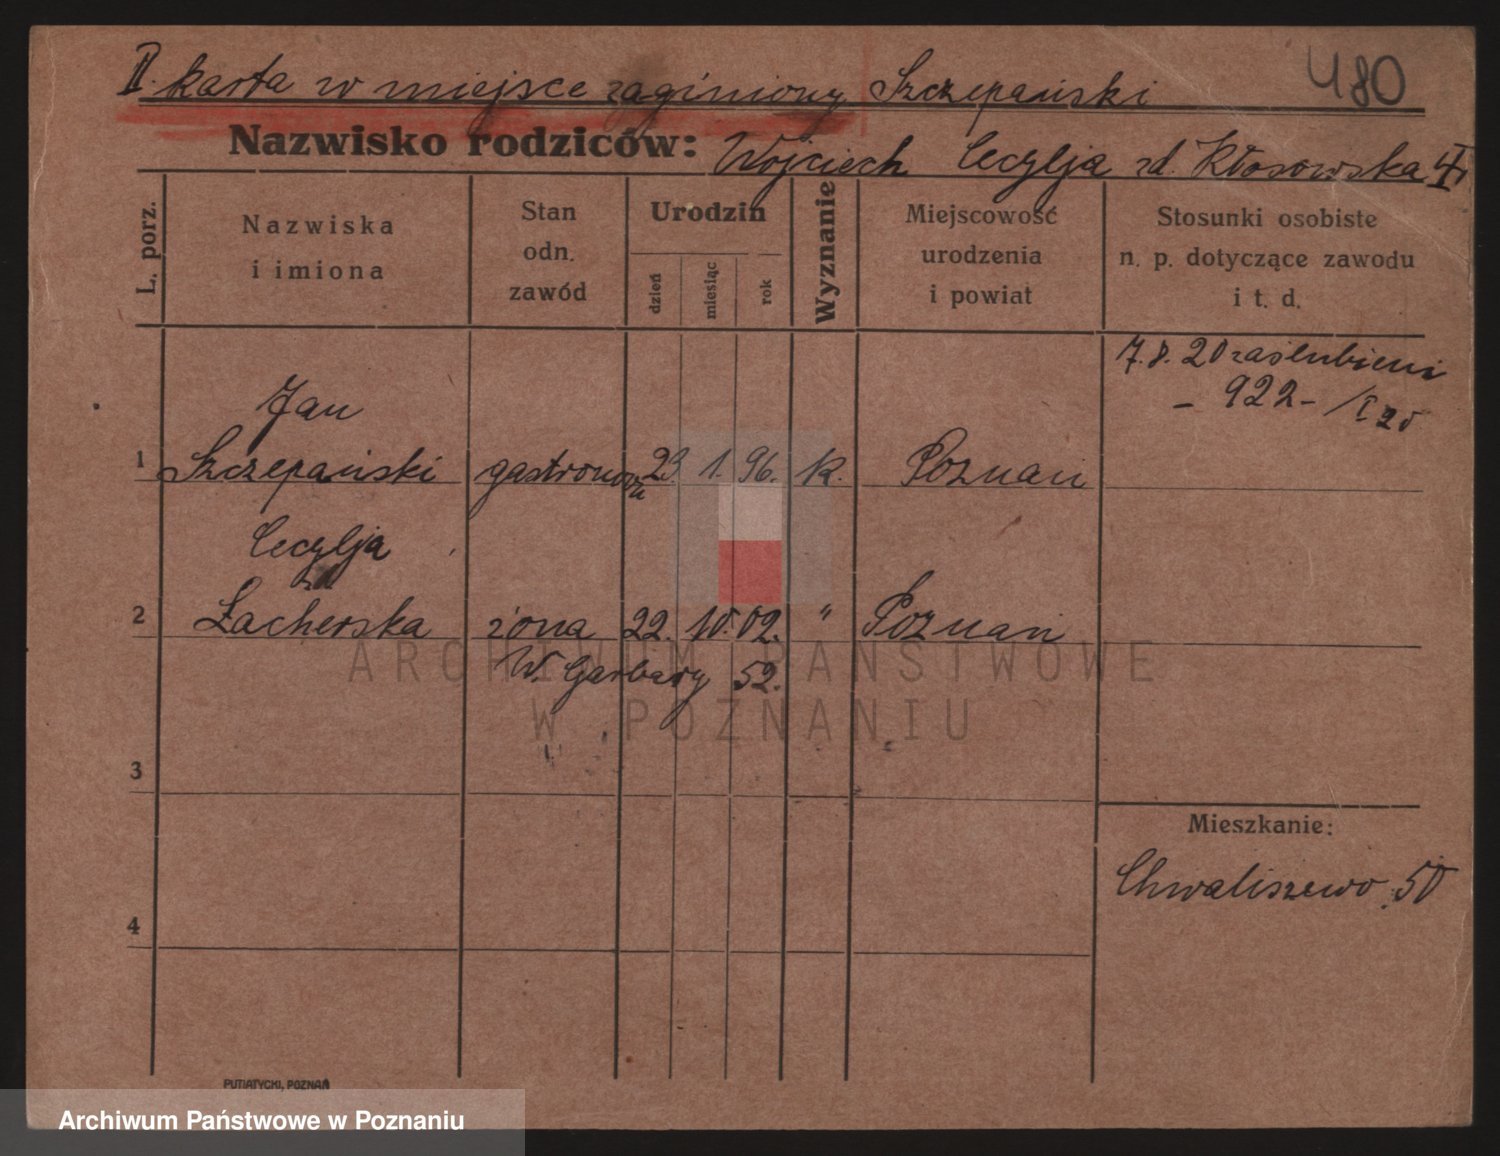 II. karta w miejsce zaginiony Szczepański
480
Nazwisko rodziców: Wojciech Cecylja zd. Kłosowska
L. porz.
Nazwiska
i imiona
Stan
odn.
zawód
Urodzin
dzień
miesiąc
rok
Wyznanie
Miejscowość
urodzenia
i powiat
Stosunki osobiste
n. p. dotyczące zawodu
i t. d.
7.8.20 zaślubieni
- 922 -
Jan
1 Szczepański gastronom 23. 1. 96. K. Poznań
Cecylja
zd.
2 Łacherska żona 22. 10. 02. " Poznań
W. Garbary 52.
3
Mieszkanie:
Chwaliszewo 50
4
PUTIATYCKI, POZNAŃ
ARCHIWUM PAŃSTWOWE
W POZNANIU
Archiwum Państwowe w Poznaniu